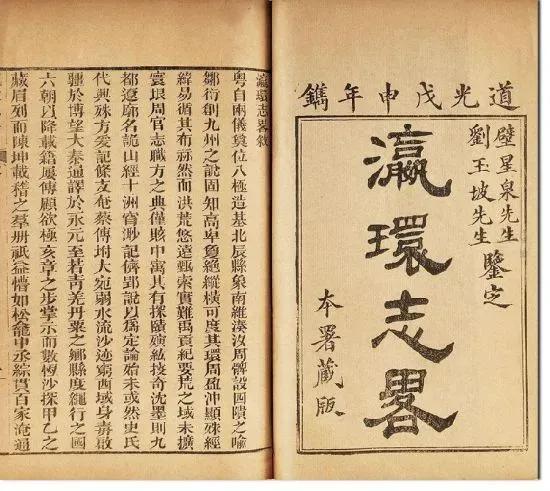 道光戊申年鐫
璧星泉先生
劉玉坡先生
鑒定
瀛環志畧
本署藏版
瀛環志畧敘
粤自兩儀奠位八極造基北辰縣象南維湊沒周髀設四隤之喻
鄒衍創九州之說固知高卑敻絕縱橫可度其環周盈沖顯殊經
緯易循其布赫然而洪荒悠遠甄索實難禹貢紀要荒之域未擴
寰垠周官志職方之典僅賅中寓其有探賾紘技奇沈墨則九
都遼廓名詭山經十洲窅渺記儕郢說以為定論殆未或然史氏
代興殊方爰記條支奄蔡傳坿大宛弱水流沙迹窮西域身毒啟
疆於博望大秦通譯於永元至若青羌丹粟之鄉縣度繩行之國
六朝以降載籍屢傳顧欲極亥章之步掌示而數恆沙探甲乙之
藏眉列而陳坤載稽之羣冊祇益懵如松龕中丞綜貫百家淹通